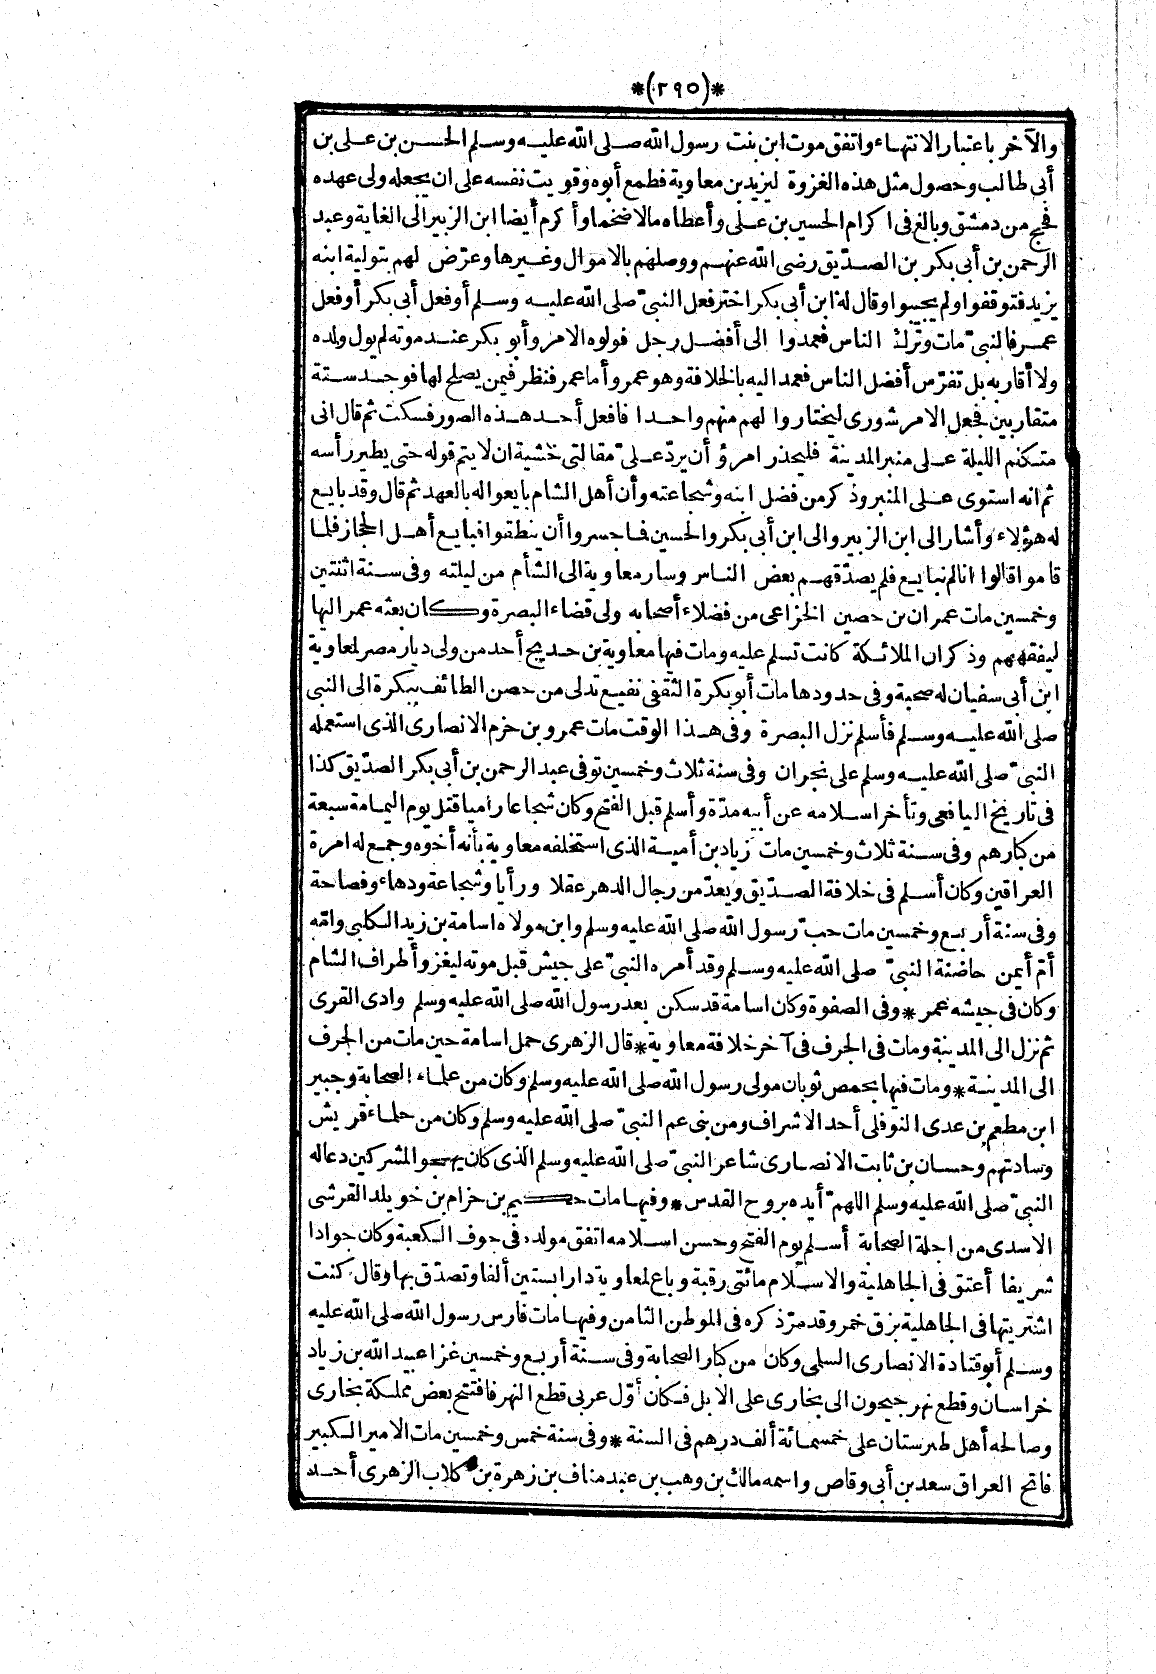 *(٢٩٥)*
والآخر باعتبار الانتهاء واتفق موت ابن بنت رسول الله صلى الله عليه وسلم الحسن بن على بن
أبى طالب وحصول مثل هذه الغزوة ليزيد بن معاوية فطمع أبوه وقويت نفسه على ان يجعله ولى عهده
فحج من دمشق وبالغ فى اكرام الحسين بن على وأعطاه مالا ضخما وأكرم أيضا ابن الزبير الى الغاية وعبد
الرحمن بن أبى بكر بن الصدّيق رضى الله عنهم ووصلهم بالاموال وغيرها وعرّض لهم بتولية ابنه
يزيد فتوقفوا ولم يجيبوا وقال له ابن أبى بكر اختر فعل النبىّ صلى الله عليه وسلم أو فعل أبى بكر أو فعل
عمر فالنبىّ مات وترك الناس فعمدوا الى أفضل رجل فولوه الامر وأبو بكر عند موته لم يول ولده
ولا أقاربه بل تفرّس أفضل الناس فعمد اليه بالخلافة وهو عمر وأما عمر فنظر فيمن يصلح لها فوجد ستة
متقاربين فجعل الامر شورى ليختاروا لهم منهم واحدا فافعل أحد هذه الصور فسكت ثم قال انى
متكلم الليلة على منبر المدينة فليحذر امرؤ أن يردّ علىّ مقالتى خشية ان لا يتم قوله حتى يطير رأسه
ثم انه استوى على المنبر وذكر من فضل ابنه وشجاعته وأن أهل الشام بايعوا له بالعهد ثم قال وقد بايع
له هؤلاء وأشار الى ابن الزبير والى ابن أبى بكر والحسين فما جسروا أن ينطقوا فبايع أهل الحجاز فلما
قاموا قالوا انا لم نبايع فلم يصدّقهم بعض الناس وسار معاوية الى الشأم من ليلته وفى سنة اثنتين
وخمسين مات عمران بن حصين الخزاعى من فضلاء أصحابه ولى قضاء البصرة وكان بعثه عمر اليها
ليفقههم وذكر ان الملائكة كانت تسلم عليه ومات فيها معاوية بن حديج أحد من ولى ديار مصر لمعاوية
ابن أبى سفيان له صحبة وفى حدودها مات أبو بكرة الثقفى نفيع تدلى من حصن الطائف ببكرة الى النبى
صلى الله عليه وسلم فأسلم نزل البصرة وفى هذا الوقت مات عمرو بن حزم الانصارى الذى استعمله
النبىّ صلى الله عليه وسلم على نجران وفى سنة ثلاث وخمسين توفى عبد الرحمن بن أبى بكر الصدّيق كذا
فى تاريخ اليافعى وتأخر اسلامه عن أبيه مدّة وأسلم قبل الفتح وكان شجاعا راميا قتل يوم اليمامة سبعة
من كبارهم وفى سنة ثلاث وخمسين مات زياد بن أمية الذى استخلفه معاوية بأنه أخوه وجمع له امرة
العراقين وكان أسلم فى خلافة الصدّيق ويعدّ من رجال الدهر عقلا ورأيا وشجاعة ودهاء وفصاحة
وفى سنة أربع وخمسين مات حبّ رسول الله صلى الله عليه وسلم وابن مولاه اسامة بن زيد الكلبى وامّه
أمّ أيمن حاضنة النبىّ صلى الله عليه وسلم وقد أمره النبىّ على جيش قبل موته ليغزو أطراف الشام
وكان فى جيشه عمر * وفى الصفوة وكان اسامة قد سكن بعد رسول الله صلى الله عليه وسلم وادى القرى
ثم نزل الى المدينة ومات فى الجرف فى آخر خلافة معاوية * قال الزهرى حمل اسامة حين مات من الجرف
الى المدينة * ومات فيها بحمص ثوبان مولى رسول الله صلى الله عليه وسلم وكان من علماء الصحابة وجبير
ابن مطعم بن عدى النوفلى أحد الاشراف ومن بنى عم النبىّ صلى الله عليه وسلم وكان من حلماء قريش
وسادتهم وحسان بن ثابت الانصارى شاعر النبىّ صلى الله عليه وسلم الذى كان يهجو المشركين دعاله
النبىّ صلى الله عليه وسلم اللهمّ أيده بروح القدس * وفيها مات حكيم بن حزام بن خويلد القرشى
الاسدى من اجلة الصحابة أسلم يوم الفتح وحسن اسلامه اتفق مولده فى جوف الكعبة وكان جوادا
شريفا أعتق فى الجاهلية والاسلام مائتى رقبة وباع لمعاوية دارا بستين ألفا وتصدّق بها وقال كنت
اشتريتها فى الجاهلية بزق خمر وقد مرّ ذكره فى الموطن الثامن وفيها مات فارس رسول الله صلى الله عليه
وسلم أبو قتادة الانصارى السلمى وكان من كبار الصحابة وفى سنة أربع وخمسين غزا عبيد الله بن زياد
خراسان وقطع نهر جيحون الى بخارى على الابل فكان أوّل عربى قطع النهر فافتتح بعض مملكة بخارى
وصالحه أهل طبرستان على خمسمائة ألف درهم فى السنة * وفى سنة خمس وخمسين مات الامير الكبير
فاتح العراق سعد بن أبى وقاص واسمه مالك بن وهب بن عبد مناف بن زهرة بن كلاب الزهرى أحد